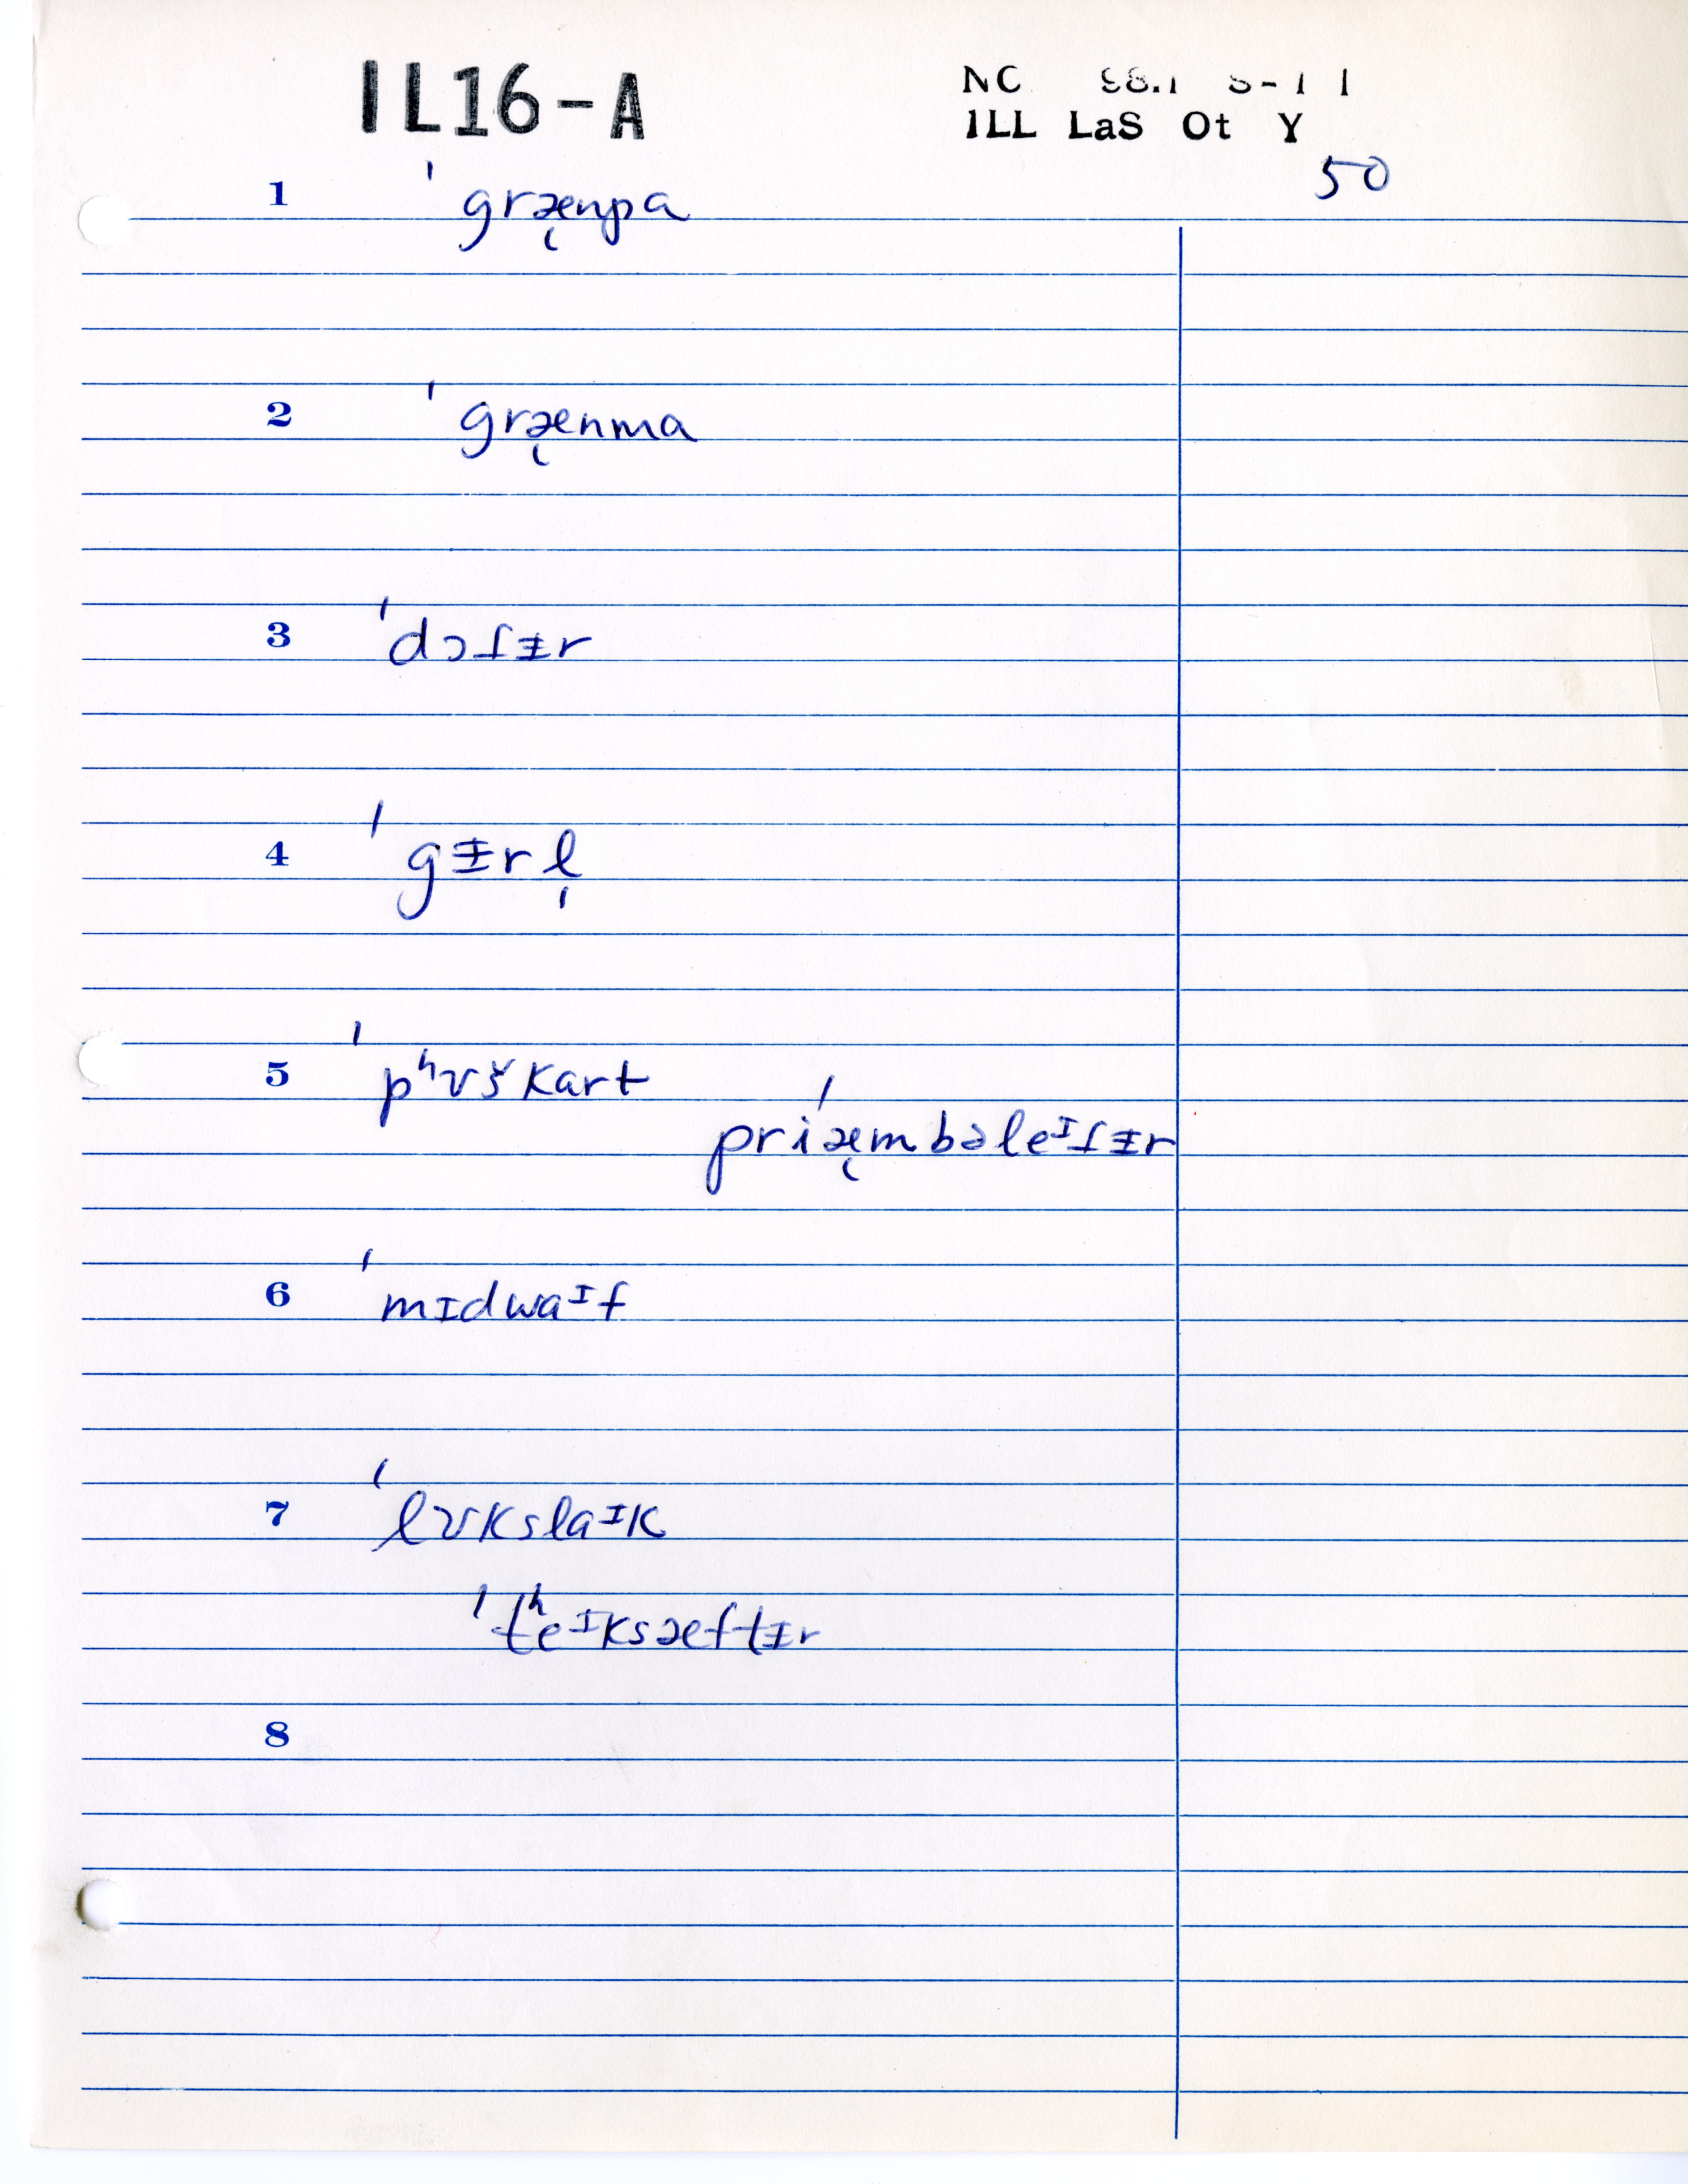 IL16-A
NC
ILL LaS Ot Y
50
1 ˈgræ̨npa
2 ˈgræ̨nma
3 ˈdɔſᵻr
4 ˈgᵻrl̩
5 ˈpʰʊškart
priˈæ̨mbəleᴵſᵻr
6 ˈmɪdwaᴵf
7 ˈlʊkslaᴵk
ˈtʰeᴵksæftᵻr
8